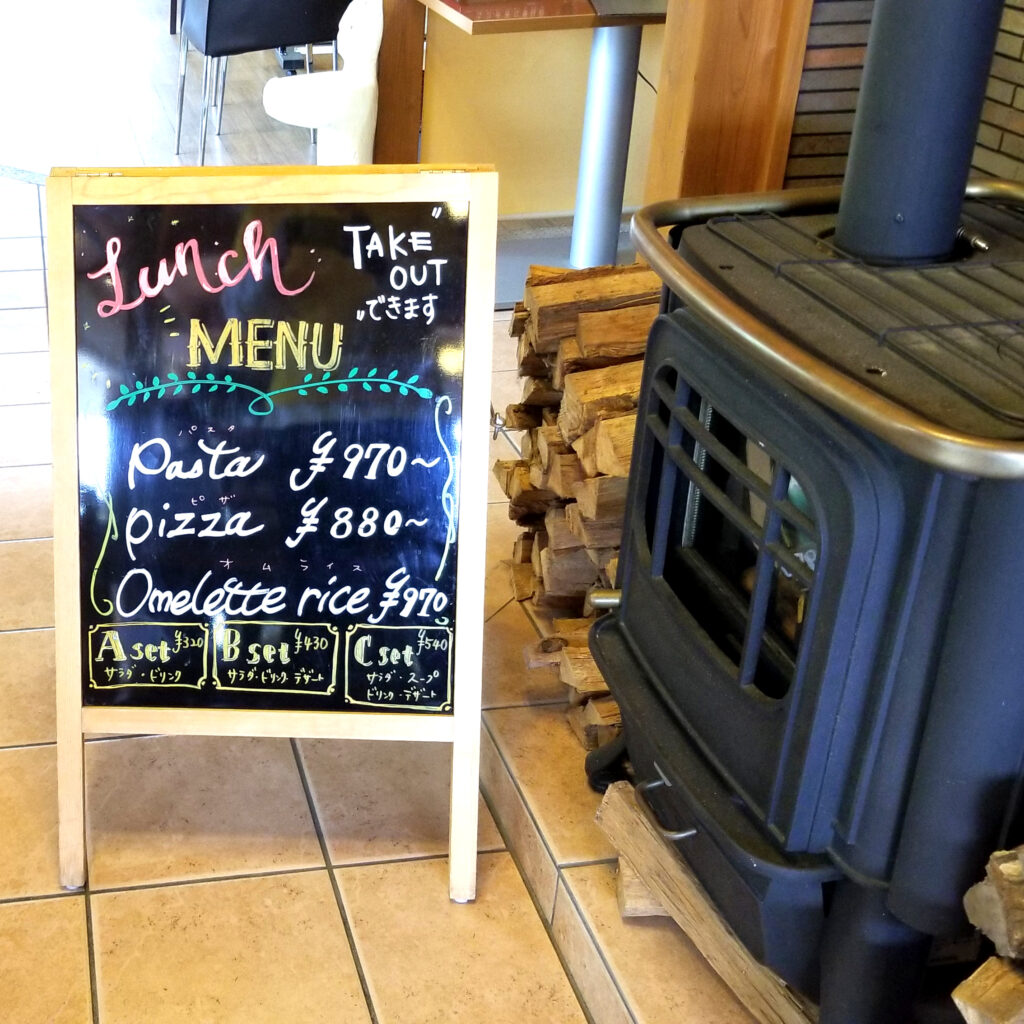 Lunch
MENU
"TAKE
OUT
"できます
パスタ
Pasta ¥970~
ピザ
Pizza ¥880~
オムライス
Omelette rice ¥970
A set ¥320
サラダ・ドリンク
B set ¥430
サラダ・ドリンク・デザート
C set ¥540
サラダ・スープ
ドリンク・デザート